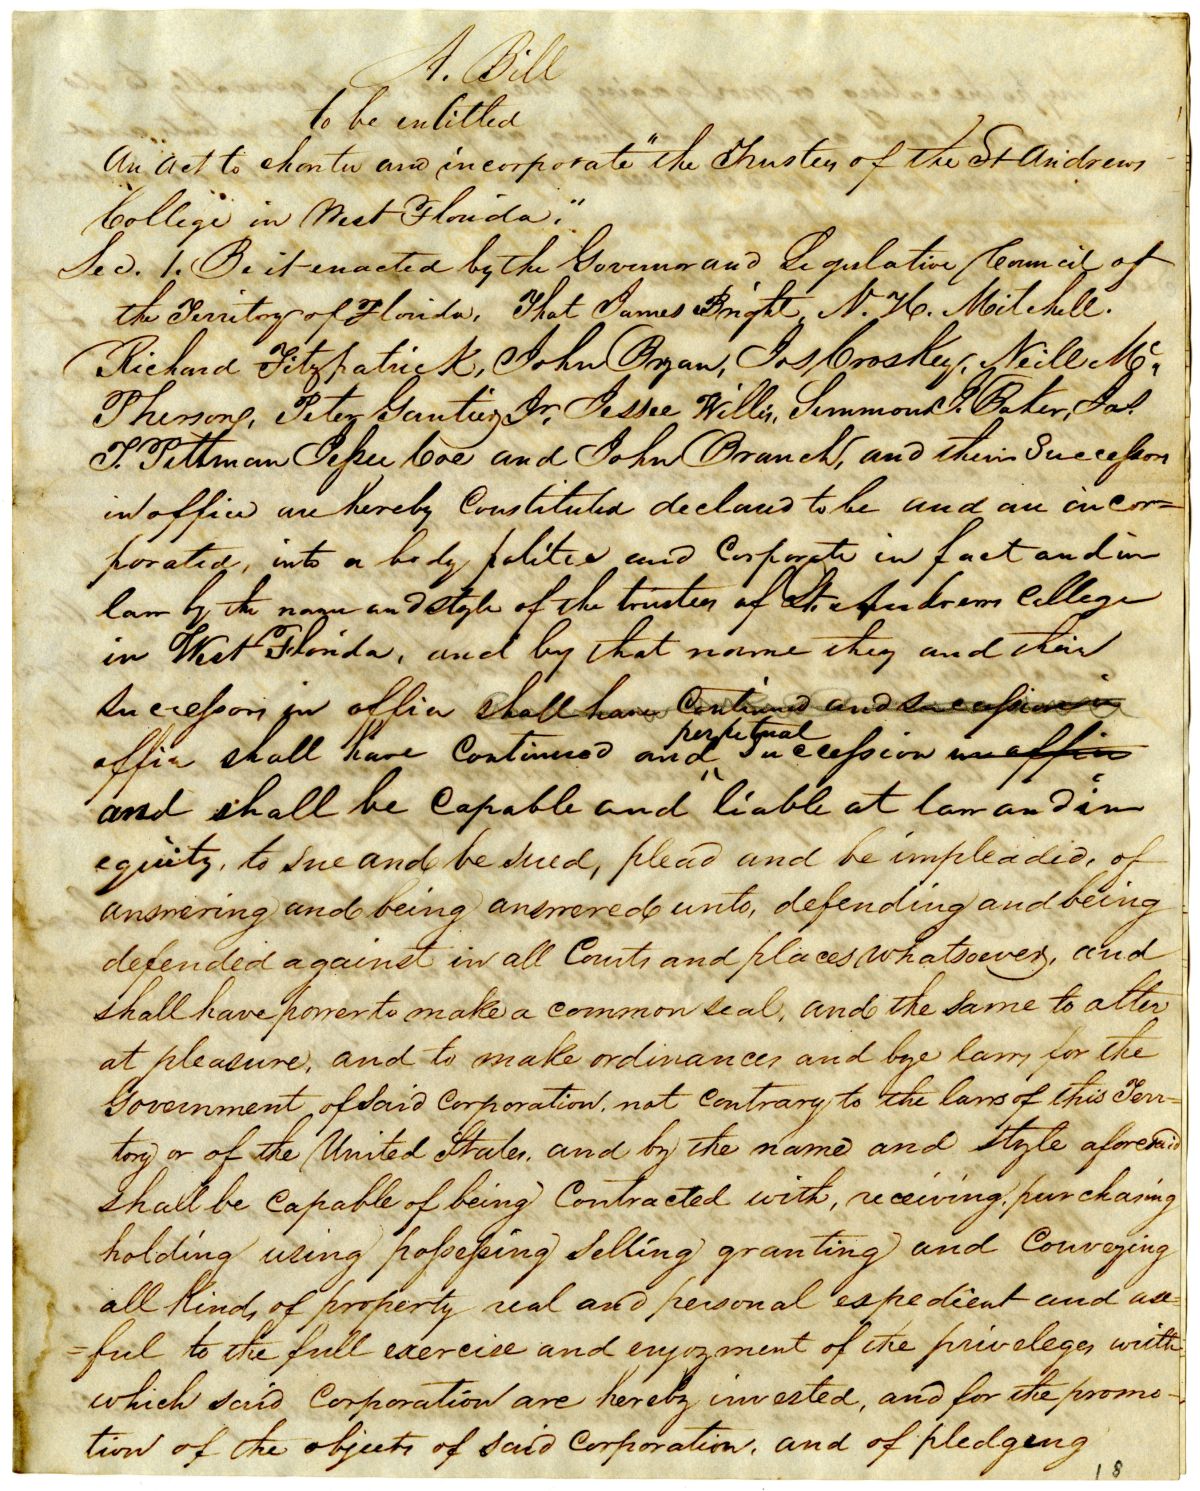 A. Bill
to be entitled
An act to charter and incorporate "the Trustees of the St Andrews
College in West Florida."
Sec. 1. Be it enacted by the Governor and Legislative Council of
the Territory of Florida, That James Bright, N. H. Mitchell.
Richard Fitzpatrick, John Bryan, Jos Croskey, Neill Mc,
Pherson, Peter Gautier Jr, Jessee Willis, Simmons J. Baker, Jas.
T. Pittman Jessee Coe and John Branch, and their Successors
in office are hereby Constituted declared to be and are incor=
porated, into a body politic and corporate in fact and in
law by the name and style of the trustees of St. Andrews College
in West Florida, and by that name they and their
successors in office shall have Continued and succession in
perpetual
office shall have Continued and Succession in office
and shall be Capable and liable at law and in
equity, to sue and be sued, plead and be impleaded, of
answering and being answered unto, defending and being
defended against in all Courts and places whatsoever, and
shall have power to make a common seal, and the same to alter
at pleasure, and to make ordinances and bye laws for the
Government of said Corporation, not contrary to the laws of this Terri=
tory or of the United States, and by the name and style aforesaid
shall be Capable of being Contracted with, receiving, purchasing
holding using possessing selling granting and Conveying
all kinds of property real and personal expedient and use=
=ful to the full exercise and enjoyment of the priveleges with
which said Corporation are hereby invested, and for the promo=
tion of the objects of said Corporation, and of pledging
18